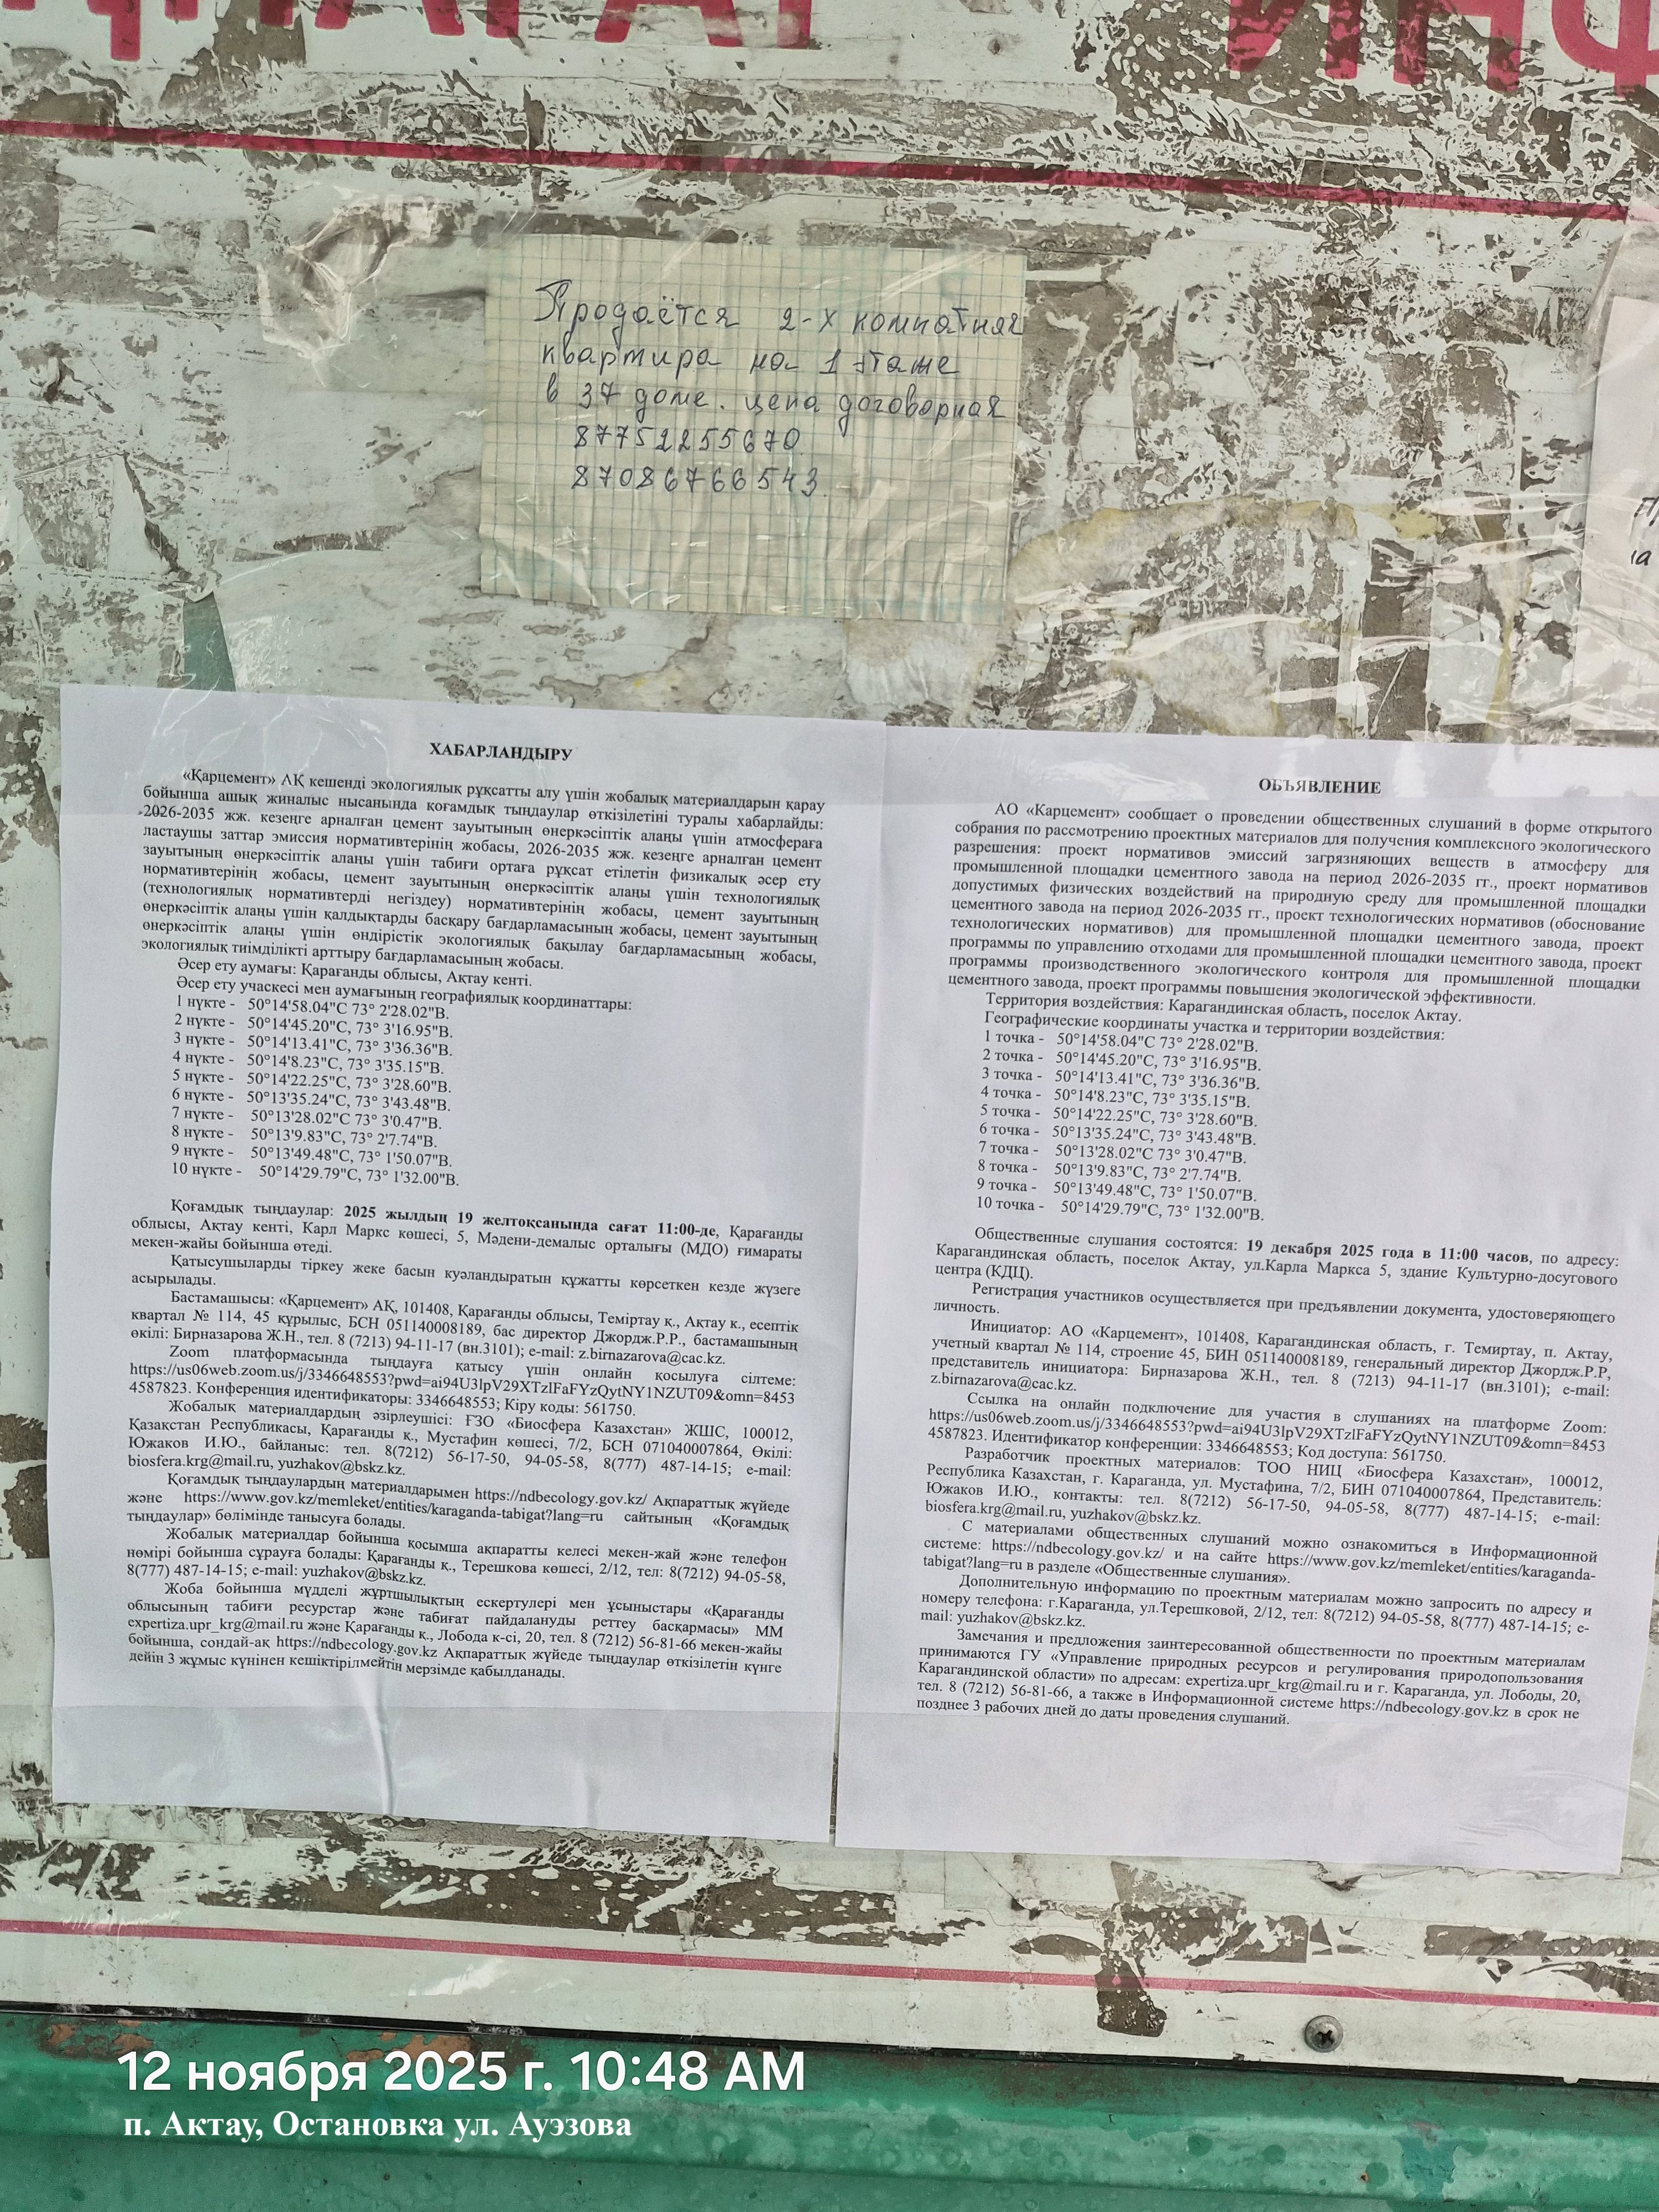 Продаётся 2-х комнатная
квартира на 1 этаже
в 37 доме. цена договорная
87752255670.
87086766543.
ХАБАРЛАНДЫРУ
«Қарцемент» АҚ кешенді экологиялық рұқсатты алу үшін жобалық материалдарын қарау
бойынша ашық жиналыс нысанында қоғамдық тыңдаулар өткізілетіні туралы хабарлайды:
2026-2035 жж. кезеңге арналған цемент зауытының өнеркәсіптік алаңы үшін атмосфераға
ластаушы заттар эмиссия нормативтерінің жобасы, 2026-2035 жж. кезеңге арналған цемент
зауытының өнеркәсіптік алаңы үшін табиғи ортаға рұқсат етілетін физикалық әсер ету
нормативтерінің жобасы, цемент зауытының өнеркәсіптік алаңы үшін технологиялық
(технологиялық нормативтерді негіздеу) нормативтерінің жобасы, цемент зауытының
өнеркәсіптік алаңы үшін қалдықтарды басқару бағдарламасының жобасы, цемент зауытының
өнеркәсіптік алаңы үшін өндірістік экологиялық бақылау бағдарламасының жобасы,
экологиялық тиімділікті арттыру бағдарламасының жобасы.
Әсер ету аумағы: Қарағанды облысы, Ақтау кенті.
Әсер ету учаскесі мен аумағының географиялық координаттары:
1 нүкте - 50°14'58.04"С 73° 2'28.02"В.
2 нүкте - 50°14'45.20"С, 73° 3'16.95"В.
3 нүкте - 50°14'13.41"С, 73° 3'36.36"В.
4 нүкте - 50°14'8.23"С, 73° 3'35.15"В.
5 нүкте - 50°14'22.25"С, 73° 3'28.60"В.
6 нүкте - 50°13'35.24"С, 73° 3'43.48"В.
7 нүкте - 50°13'28.02"С 73° 3'0.47"В.
8 нүкте - 50°13'9.83"С, 73° 2'7.74"В.
9 нүкте - 50°13'49.48"С, 73° 1'50.07"В.
10 нүкте - 50°14'29.79"С, 73° 1'32.00"В.
Қоғамдық тыңдаулар: 2025 жылдың 19 желтоқсанында сағат 11:00-де, Қарағанды
облысы, Ақтау кенті, Карл Маркс көшесі, 5, Мәдени-демалыс орталығы (МДО) ғимараты
мекен-жайы бойынша өтеді.
Қатысушыларды тіркеу жеке басын куәландыратын құжатты көрсеткен кезде жүзеге
асырылады.
Бастамашысы: «Қарцемент» АҚ, 101408, Қарағанды облысы, Теміртау қ., Ақтау к., есептік
квартал № 114, 45 құрылыс, БСН 051140008189, бас директор Джордж.Р.Р., бастамашының
өкілі: Бирназарова Ж.Н., тел. 8 (7213) 94-11-17 (вн.3101); e-mail: z.birnazarova@cac.kz.
Zoom платформасында тыңдауға қатысу үшін онлайн қосылуға сілтеме:
https://us06web.zoom.us/j/3346648553?pwd=ai94U3lpV29XTzlFaFYzQytNY1NZUT09&omn=8453
4587823. Конференция идентификаторы: 3346648553; Кіру коды: 561750.
Жобалық материалдардың әзірлеушісі: ҒЗО «Биосфера Казахстан» ЖШС, 100012,
Қазақстан Республикасы, Қарағанды қ., Мустафин көшесі, 7/2, БСН 071040007864, Өкілі:
Южаков И.Ю., байланыс: тел. 8(7212) 56-17-50, 94-05-58, 8(777) 487-14-15; e-mail:
biosfera.krg@mail.ru, yuzhakov@bskz.kz.
Қоғамдық тыңдаулардың материалдарымен https://ndbecology.gov.kz/ Ақпараттық жүйеде
және https://www.gov.kz/memleket/entities/karaganda-tabigat?lang=ru сайтының «Қоғамдық
тыңдаулар» бөлімінде танысуға болады.
Жобалық материалдар бойынша қосымша ақпаратты келесі мекен-жай және телефон
нөмірі бойынша сұрауға болады: Қарағанды қ., Терешкова көшесі, 2/12, тел: 8(7212) 94-05-58,
8(777) 487-14-15; e-mail: yuzhakov@bskz.kz.
Жоба бойынша мүдделі жұртшылықтың ескертулері мен ұсыныстары «Қарағанды
облысының табиғи ресурстар және табиғат пайдалануды реттеу басқармасы» ММ
expertiza.upr_krg@mail.ru және Қарағанды қ., Лобода к-сі, 20, тел. 8 (7212) 56-81-66 мекен-жайы
бойынша, сондай-ақ https://ndbecology.gov.kz Ақпараттық жүйеде тыңдаулар өткізілетін күнге
дейін 3 жұмыс күнінен кешіктірілмейтін мерзімде қабылданады.
ОБЪЯВЛЕНИЕ
АО «Карцемент» сообщает о проведении общественных слушаний в форме открытого
собрания по рассмотрению проектных материалов для получения комплексного экологического
разрешения: проект нормативов эмиссий загрязняющих веществ в атмосферу для
промышленной площадки цементного завода на период 2026-2035 гг., проект нормативов
допустимых физических воздействий на природную среду для промышленной площадки
цементного завода на период 2026-2035 гг., проект технологических нормативов (обоснование
технологических нормативов) для промышленной площадки цементного завода, проект
программы по управлению отходами для промышленной площадки цементного завода, проект
программы производственного экологического контроля для промышленной площадки
цементного завода, проект программы повышения экологической эффективности.
Территория воздействия: Карагандинская область, поселок Актау.
Географические координаты участка и территории воздействия:
1 точка - 50°14'58.04"С 73° 2'28.02"В.
2 точка - 50°14'45.20"С, 73° 3'16.95"В.
3 точка - 50°14'13.41"С, 73° 3'36.36"В.
4 точка - 50°14'8.23"С, 73° 3'35.15"В.
5 точка - 50°14'22.25"С, 73° 3'28.60"В.
6 точка - 50°13'35.24"С, 73° 3'43.48"В.
7 точка - 50°13'28.02"С 73° 3'0.47"В.
8 точка - 50°13'9.83"С, 73° 2'7.74"В.
9 точка - 50°13'49.48"С, 73° 1'50.07"В.
10 точка - 50°14'29.79"С, 73° 1'32.00"В.
Общественные слушания состоятся: 19 декабря 2025 года в 11:00 часов, по адресу:
Карагандинская область, поселок Актау, ул.Карла Маркса 5, здание Культурно-досугового
центра (КДЦ).
Регистрация участников осуществляется при предъявлении документа, удостоверяющего
личность.
Инициатор: АО «Карцемент», 101408, Карагандинская область, г. Темиртау, п. Актау,
учетный квартал № 114, строение 45, БИН 051140008189, генеральный директор Джордж.Р.Р,
представитель инициатора: Бирназарова Ж.Н., тел. 8 (7213) 94-11-17 (вн.3101); e-mail:
z.birnazarova@cac.kz.
Ссылка на онлайн подключение для участия в слушаниях на платформе Zoom:
https://us06web.zoom.us/j/3346648553?pwd=ai94U3lpV29XTzlFaFYzQytNY1NZUT09&omn=8453
4587823. Идентификатор конференции: 3346648553; Код доступа: 561750.
Разработчик проектных материалов: ТОО НИЦ «Биосфера Казахстан», 100012,
Республика Казахстан, г. Караганда, ул. Мустафина, 7/2, БИН 071040007864, Представитель:
Южаков И.Ю., контакты: тел. 8(7212) 56-17-50, 94-05-58, 8(777) 487-14-15; e-mail:
biosfera.krg@mail.ru, yuzhakov@bskz.kz.
С материалами общественных слушаний можно ознакомиться в Информационной
системе: https://ndbecology.gov.kz/ и на сайте https://www.gov.kz/memleket/entities/karaganda-
tabigat?lang=ru в разделе «Общественные слушания».
Дополнительную информацию по проектным материалам можно запросить по адресу и
номеру телефона: г.Караганда, ул.Терешковой, 2/12, тел: 8(7212) 94-05-58, 8(777) 487-14-15; e-
mail: yuzhakov@bskz.kz.
Замечания и предложения заинтересованной общественности по проектным материалам
принимаются ГУ «Управление природных ресурсов и регулирования природопользования
Карагандинской области» по адресам: expertiza.upr_krg@mail.ru и г. Караганда, ул. Лободы, 20,
тел. 8 (7212) 56-81-66, а также в Информационной системе https://ndbecology.gov.kz в срок не
позднее 3 рабочих дней до даты проведения слушаний.
12 ноября 2025 г. 10:48 AM
п. Актау, Остановка ул. Ауэзова